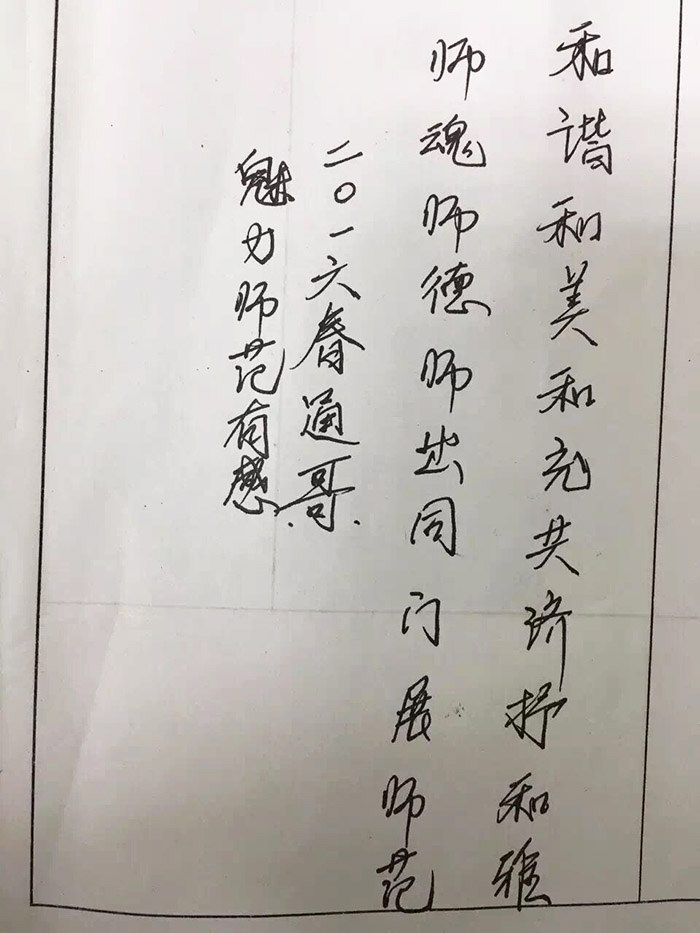 和谐和美和充共济抒和雅
师魂师德师出同门展师范
二〇一六春通哥
魅力师范有感